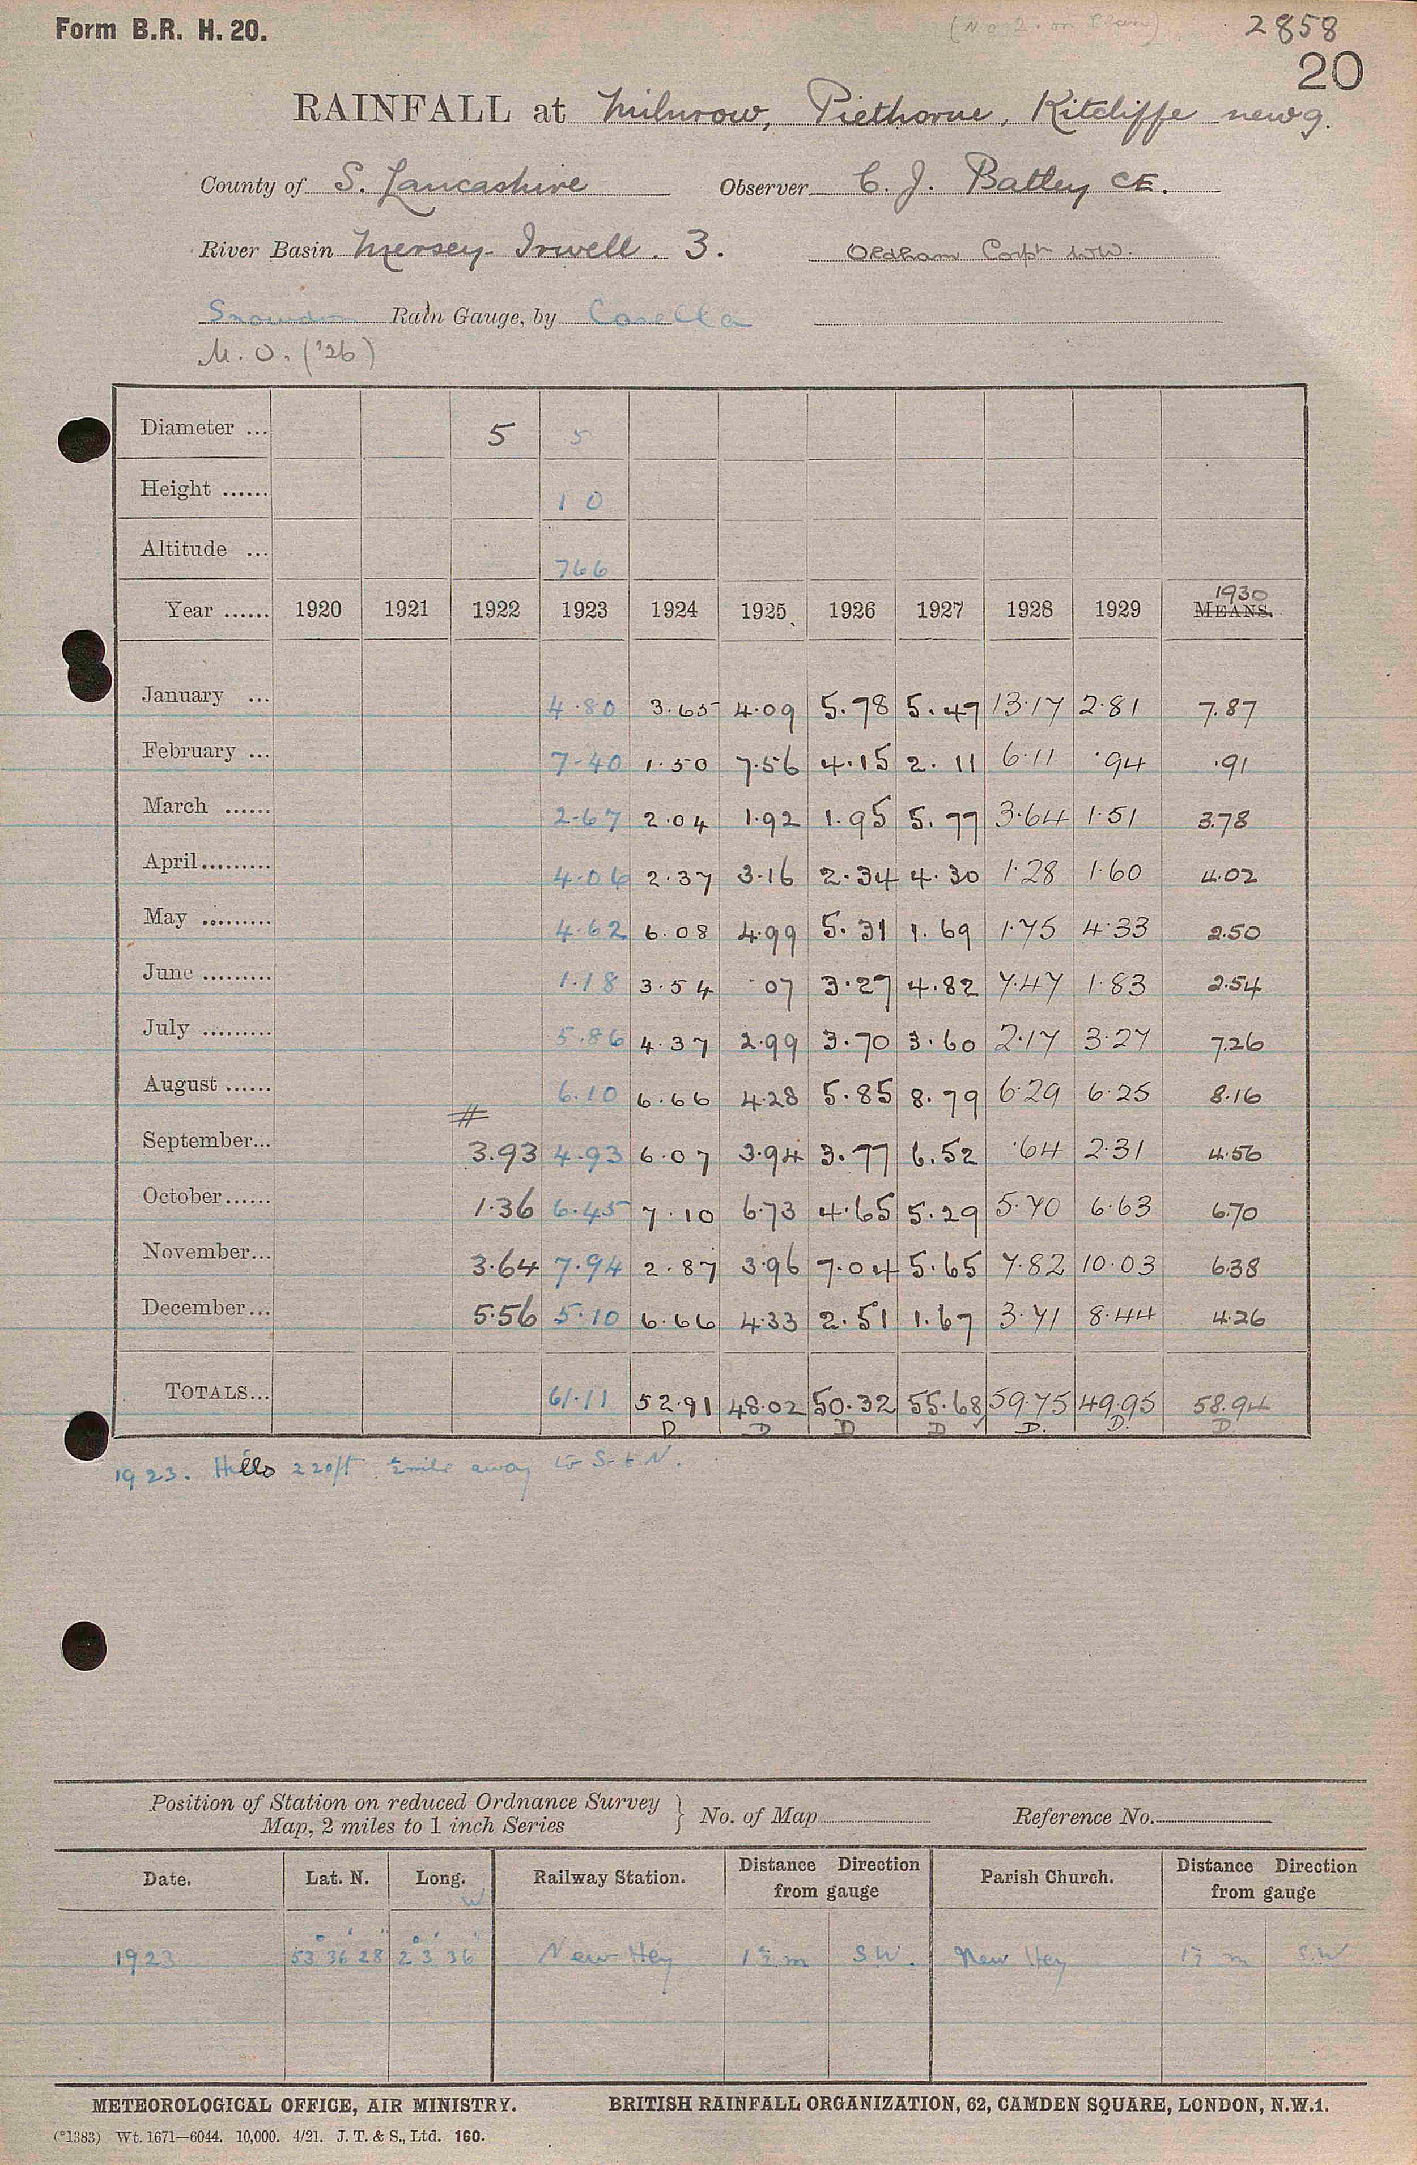 Form B.R. H. 20.
(No 2. on Plan)
2858
20
RAINFALL at Milnrow, Piethorne, Kitcliffe new g.
County of S. Lancashire Observer C. J. Batley CE.
River Basin Mersey-Irwell. 3. Oldham Corpn W.W.
Snowdon Rain Gauge, by Casella
M.O. ('26)
Diameter ... 5 5
Height ...... 1 0
Altitude ... 766
Year ...... 1920 1921 1922 1923 1924 1925 1926 1927 1928 1929 1930 MEANS.
January ... 4.80 3.65 4.09 5.78 5.47 13.17 2.81 7.87
February ... 7.40 1.50 7.56 4.15 2.11 6.11 .94 .91
March ...... 2.67 2.04 1.92 1.95 5.77 3.64 1.51 3.78
April......... 4.06 2.37 3.16 2.34 4.30 1.28 1.60 4.02
May ......... 4.62 6.08 4.99 5.31 1.69 1.75 4.33 2.50
June ......... 1.18 3.54 .07 3.27 4.82 7.47 1.83 2.54
July ......... 5.86 4.37 2.99 3.70 3.60 2.17 3.27 7.26
August ...... 6.10 6.66 4.28 5.85 8.79 6.29 6.25 8.16
September... 3.93 4.93 6.07 3.94 3.77 6.52 .64 2.31 4.56
October...... 1.36 6.45 7.10 6.73 4.65 5.29 5.70 6.63 6.70
November... 3.64 7.94 2.87 3.96 7.04 5.65 7.82 10.03 6.38
December... 5.56 5.10 6.66 4.33 2.51 1.67 3.71 8.44 4.26
TOTALS... 61.11 52.91 48.02 50.32 55.68 59.75 49.95 58.94
D D D D D. D. D.
1923. Hills 220ft ½ mile away to S. & N.
Position of Station on reduced Ordnance Survey
Map, 2 miles to 1 inch Series } No. of Map Reference No.
Date. Lat. N. Long. W Railway Station. Distance Direction from gauge Parish Church. Distance Direction from gauge
1923 53° 36' 28" 2° 3' 36" New Hey 1½ m S.W. New Hey 1½ m S.W.
METEOROLOGICAL OFFICE, AIR MINISTRY. BRITISH RAINFALL ORGANIZATION, 62, CAMDEN SQUARE, LONDON, N.W.1.
(*1383) Wt. 1671—6044. 10,000. 4/21. J. T. & S., Ltd. 160.